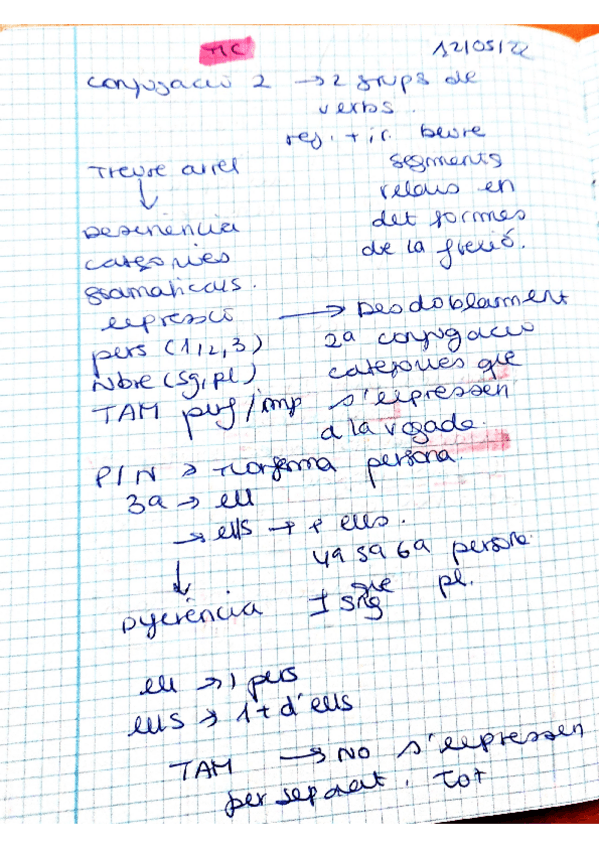 TIC
12/05/22
conjugació 2 → 2 grups de
verbs.
reg. + ir. beure
Treure arrel
segments
relleus en
det formes
de la flexió.
↓
Desinència
categories
gramaticals.
expressió → Desdoblament
pers (1,2,3) 2a conjugació
Nbre (sg, pl) categories que
TAM perf/imp s'expressen
a la vegada.
P/N → morfema persona.
3a → ell
→ ells → + ells.
4a 5a 6a persona
↓
que pl.
Diferència 1 sing
ell → 1 pers
ells → 1 + d'ells
TAM → NO s'expressen
per separat. Tot